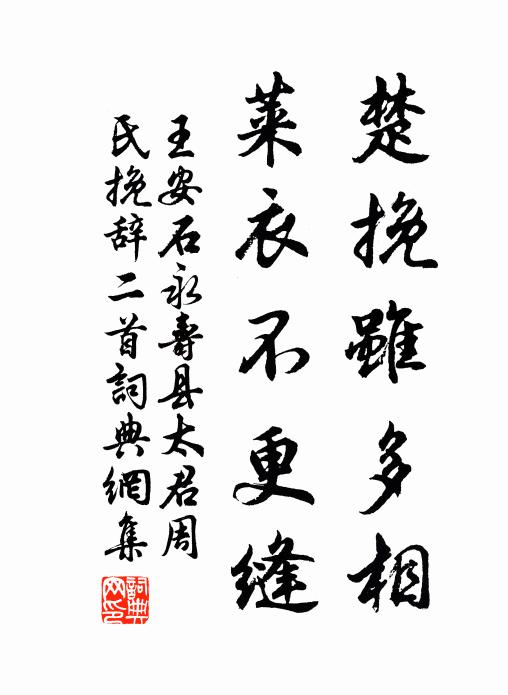 楚挽雖多相
萊衣不更縫
王安石永壽县太君周
氏挽辞二首詞典網集
詞典网印